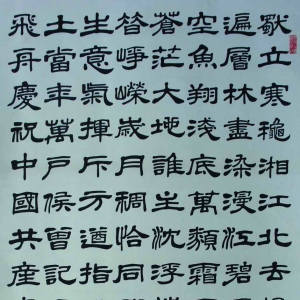 獨立寒穐湘江北去
遍層林盡染漫江碧
空魚翔淺底萬類霜
蒼茫大地誰主沈浮
昔崢嶸歲月稠恰同
生意氣揮斥方遒指
土當年萬戶侯曾記
飛舟慶祝中國共產